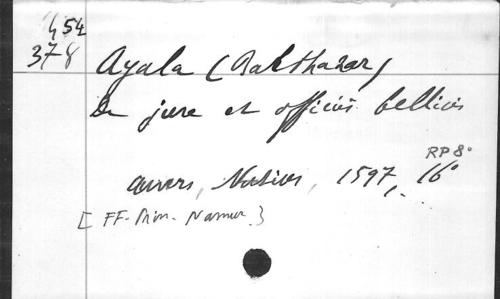 454
378
Ayala (Balthazar)
De jure et officiis bellicis
RP 8°
Anvers, Nutius, 1597, 16°
[FF. Min. Namur.]